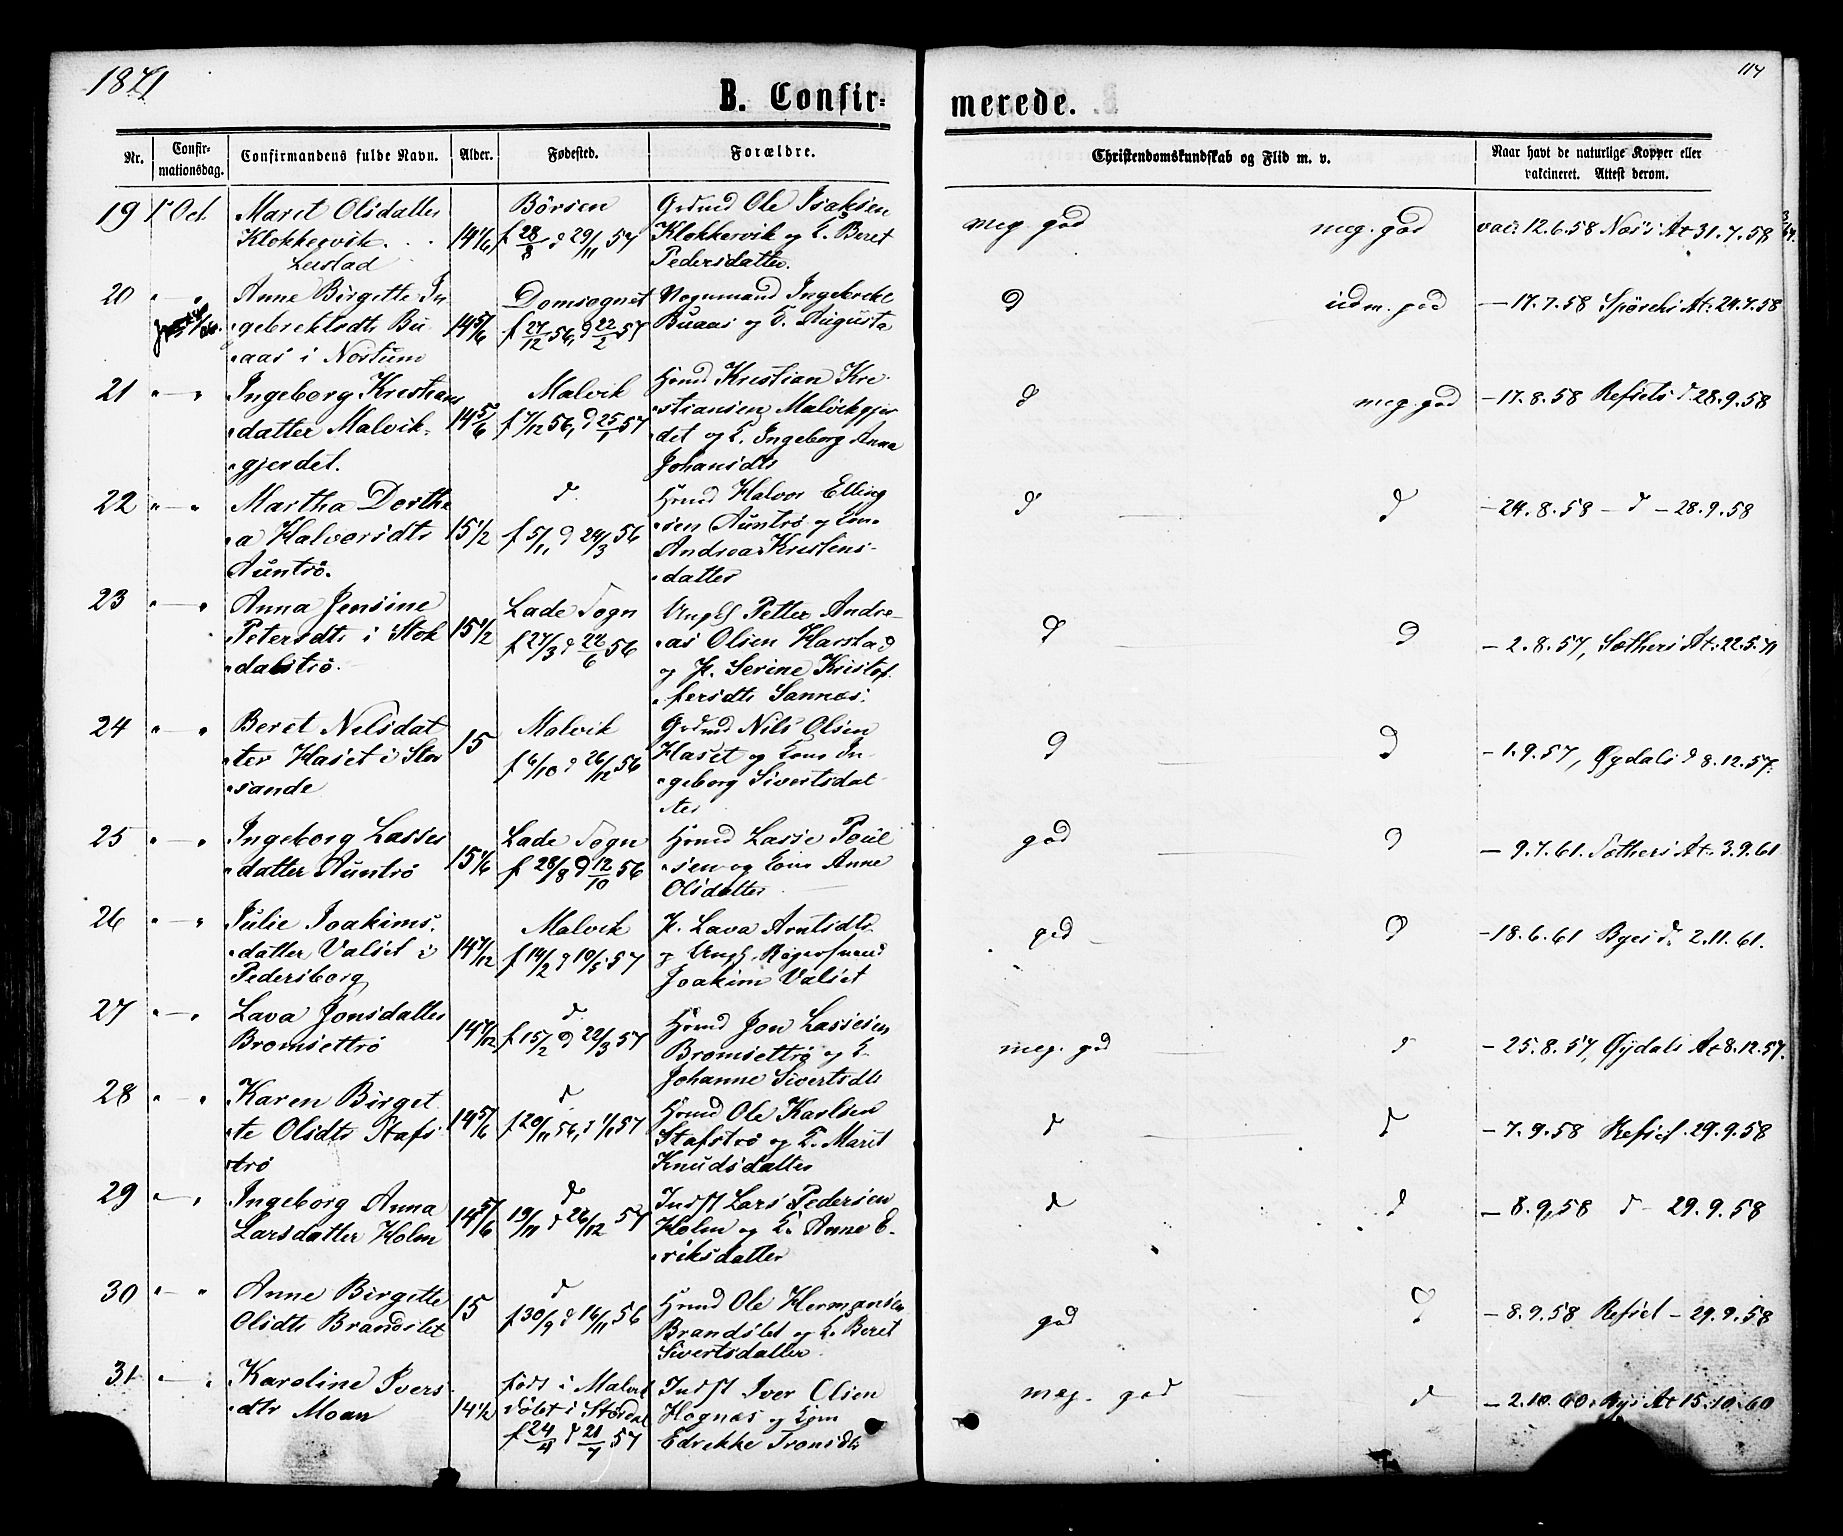 1871
114
B. Confir-
merede.
Nr.
Confir-
mationsdag.
Confirmandens fulde Navn.
Alder.
Fødested.
Forældre.
Christendomskundskab og Flid m. v.
Naar havt de naturlige Kopper eller
vakcineret. Attest derom.
19 1 Oct. Maret Olsdatter
Klokkervik
Leistad
14 1/6
Børsen
f 28/8 d 29/11 57
Grdmd Ole Isaksen
Klokkervik og K. Beret
Pedersdatter.
meg. god
meg. god
vac. 12.6.58 Næs's At 31.7.58
20 " — " Anne Birgitte In
gebrektsdtr Bu
aas i Nostum
14 5/6
Domsognet
f 27/12 56, d 22/2 57
Vognmand Ingebrekt
Buaas og K. Augusta
d
udm. god
— 17.7.58 Spörcks At. 29.7.58
21 " — " Ingeborg Kristians
datter Malvik-
gjerdet.
14 5/6
Malvik
f 7/12 56, d 25/1 57
Hmd Kristian Kri-
stiansen Malvikgjer
det og K. Ingeborg Anna
Johansdtr
d
meg. god
— 17.8.58 Refsets d 28.9.58
22 " — " Martha Dorthe
a Halvorsdtr
Auntrø.
15 1/2
d
f 5/11 d 24/3 56
Hmd Halvor Elling
sen Auntrø og Kone
Andrea Kristens-
datter
d
d
— 24.8.58 — d — 28.9.58
23 " — " Anna Jensine
Petersdtr i Stok
dalstrø.
15 1/2
Lade Sogn
f 27/3 d 22/6 56
Ungk Petter Andre-
as Olsen Harstad
og P. Serine Kristof
fersdtr Sannæs.
d
d
— 2.8.57, Sæthers At: 22.5.71
24 " — " Beret Nilsdat
ter Haset i Stor
sande
15
Malvik
f 6/10 d 26/12 56
Grdmd Nils Olsen
Haset og Kone In-
geborg Sivertsdat
ter
d
d
— 1.9.57, Øydals d 8.12.57.
25 " — " Ingeborg Lasses
datter Auntrø
15 1/6
Lade Sogn
f 28/8 d 12/10 56
Hmd Lasse Poul
sen og Kone Anne
Olsdatter
god
d
— 9.7.61. Sæthers At. 3.9.61
26 " — " Julie Joakims.
datter Valset i
Pedersborg
14 7/12
Malvik
f 14/2 d 10/5 57
P. Lava Arntsdtr.
og Ungk.
Joakim Valset
god
d
— 18.6.61 Byes d. 2.11.61.
27 " — " Lava Jonsdatter
Bromsettrø
14 7/12
d
f 15/2 d 22/3 57
Hmd Jon Lassesen
Bromsettrø og K.
Johanne Sivertsdtr
meg. god
d
— 25.8.57, Øydals At 8.12.57.
28 " — " Karen Birget
te Olsdtr Stafs
trø
14 5/6
d
f 20/11 56, d 1/1 57
Hmd Ole Karlsen
Stafstrø og K. Marit
Knudsdatter
d
d
— 7.9.58 Refset 29.9.58
29 " — " Ingeborg Anna
Larsdatter Holm
14 5/6
d
19/11 d 26/12 57
Indst Lars Pedersen
Holm og K. Anne E-
riksdatter
d
d
— 8.9.58 d — 29.9.58
30 " — " Anne Birgitte
Olsdtr Brandslet
15
d
f 30/9 d 16/11 56
Hmd Ole Hermansen
Brandslet og K. Beret
Sivertsdatter
god
d
— 8.9.58 Refset — 29.9.58
31 " — " Karoline Ivers
dtr Moan
14 1/2
født i Malvik
døbt i Størdal
f 24/4 d 21/7 57
Indst Iver Olsen
Hognæs og Kone
Edrekke Tronsdtr
meg. god
d
— 2.10.60, Byes At 15.10.60